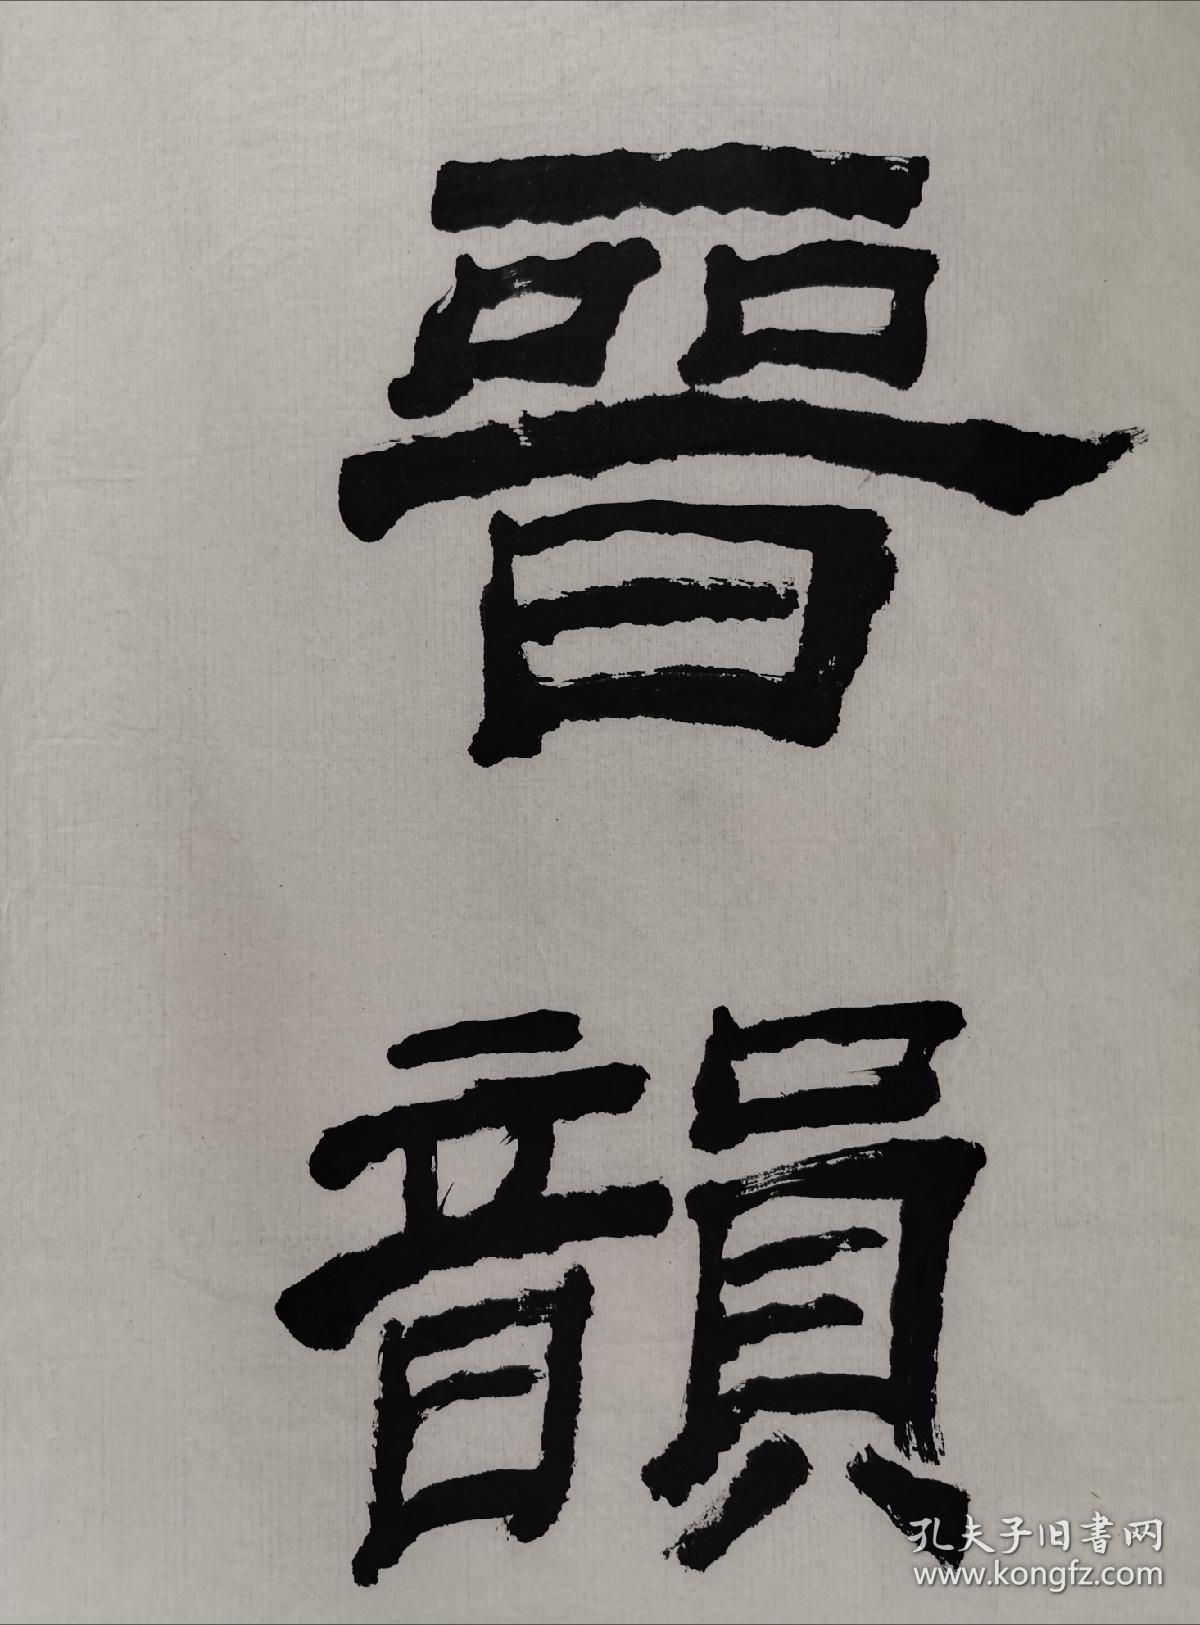 晉
韻
孔夫子旧書网
www.kongfz.com